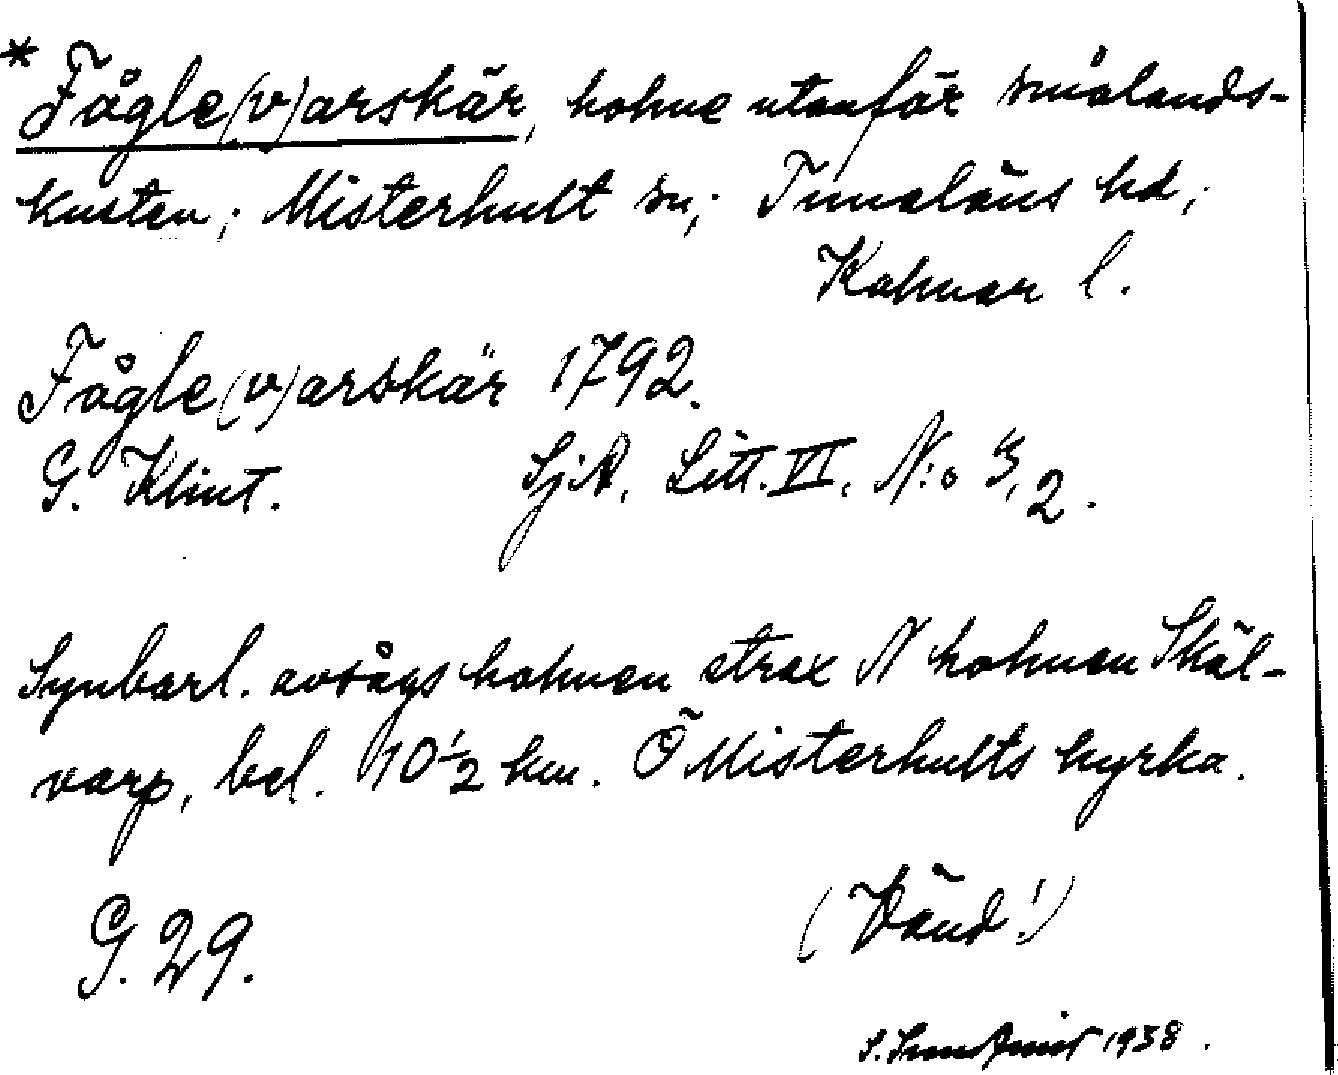 * Fågle(v)arskär, holme utanför smålands-
kusten; Misterhult sn; Tunaläns hd;
Kalmar l.
Fågle(v)arskär 1792.
G. Klint. SjA, Litt. VI, N:o 3, 2.
Synbarl. avsågs holmen strax N holmen Skäl-
varp, bel. 10 1/2 km. Ö Misterhults kyrka.
G. 29. (Vänd!)
1938.